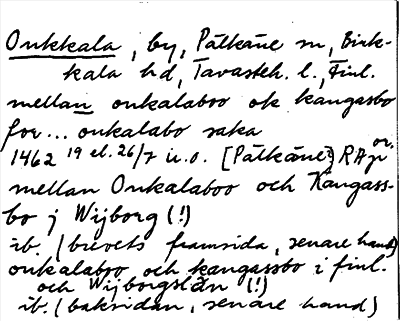 Onkkala, by, Pälkäne sn, Birk-
kala hd, Tavasteh. l., Finl.
mellan onkalaboo ok kangasbo
for... onkalabo saka
1462 19 el. 26/7 u.o. [Pälkäne?] RAp or.
mellan Onkalaboo och Kangass-
bo j Wijborg (!)
ib. (brevets framsida, senare hand)
onkalabro och kangassbo i finl.
och Wijborgslän (!)
ib. (baksidan, senare hand)